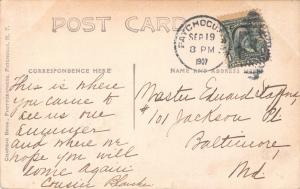 POST CARD
PATCHOGUE
SEP 19
8 PM
1907
CORRESPONDENCE HERE
NAME AND ADDRESS HERE
This is where
you came to
see us one
summer
and where we
hope you will
come again
Cousin Blanche
Master Edward
#101 Jackson Pl
Baltimore,
Md